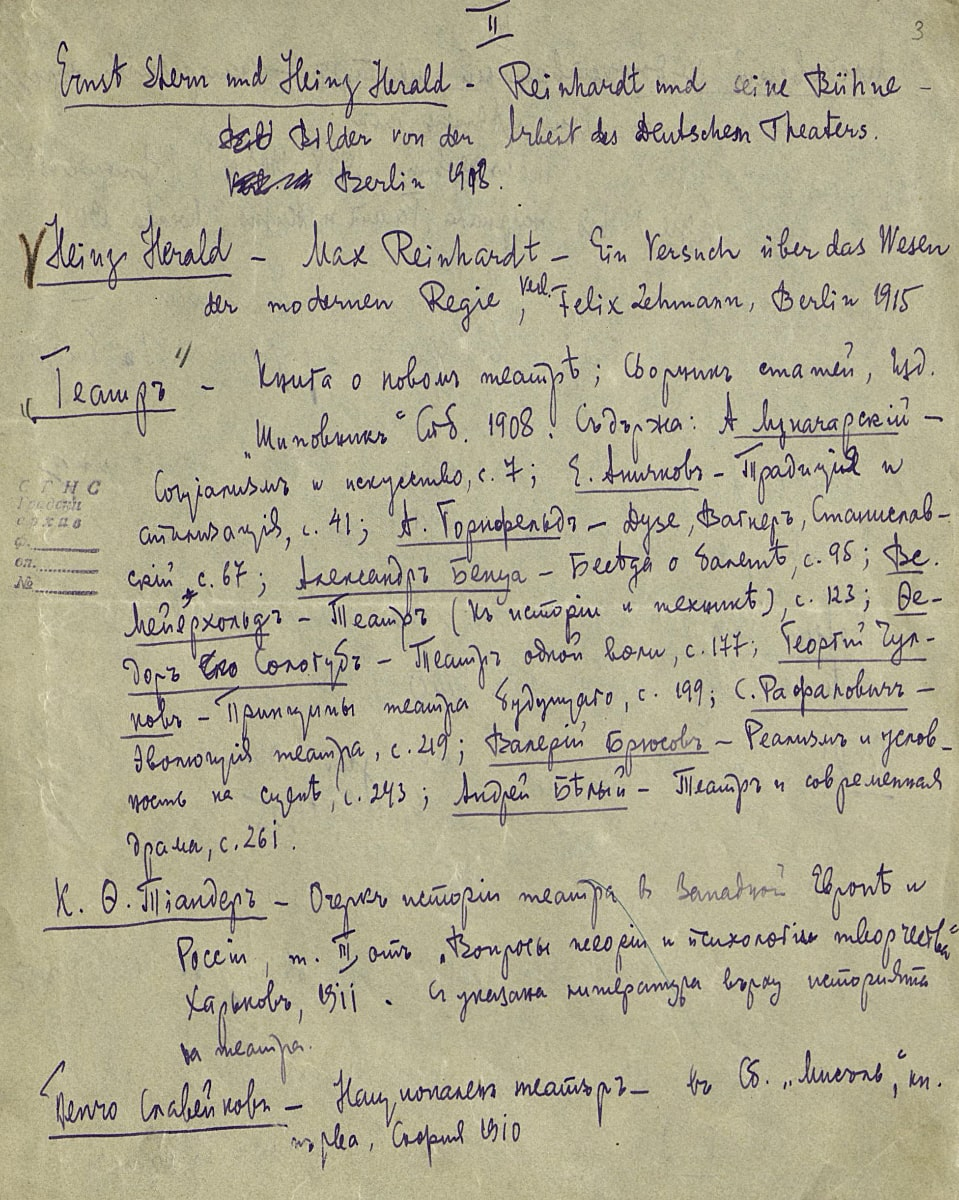 II
3
Ernst Stern und Heinz Herald - Reinhardt und seine Bühne -
Bilder von der Arbeit des Deutschen Theaters.
Berlin 1918.
Heinz Herald - Max Reinhardt - Ein Versuch über das Wesen
der modernen Regie, Verl. Felix Lehmann, Berlin 1915
„Театръ“ - Книга о новомъ театрѣ; Сборникъ статей, Изд.
„Шиповникъ“ Спб. 1908. Съдържа: А Луначарскій -
Соціализмъ и искусство, с. 7; Е. Аничковъ - Традиція и
стилизація, с. 41; А. Горнфельдъ - Дузе, Вагнеръ, Станислав-
скій, с. 67; Александръ Бенуа - Бесѣда о балетѣ, с. 95; Вс.
Мейерхольдъ - Театръ (Къ исторіи и техникѣ), с. 123; Ѳе-
доръ Сологубъ - Театръ одной воли, с. 177; Георгій Чул-
ковъ - Принципы театра будущаго, с. 199; С. Рафаловичъ -
Эволюція театра, с. 219; Валерій Брюсовъ - Реализмъ и услов-
ность на сценѣ, с. 243; Андрей Бѣлый - Театръ и современная
драма, с. 261.
С Г Н С
Градски
архив
ф.
оп.
№
К. Ѳ. Тіандеръ - Очеркъ исторіи театра в Западной Европѣ и
Россіи, т. III отъ „Вопросы теоріи и психологіи творчества“
Харьковъ, 1911. С указана литература върху историята
на театра.
Пенчо Славейковъ - Националенъ театъръ - въ Сб. „Мисъль“, кн.
първа, София 1910